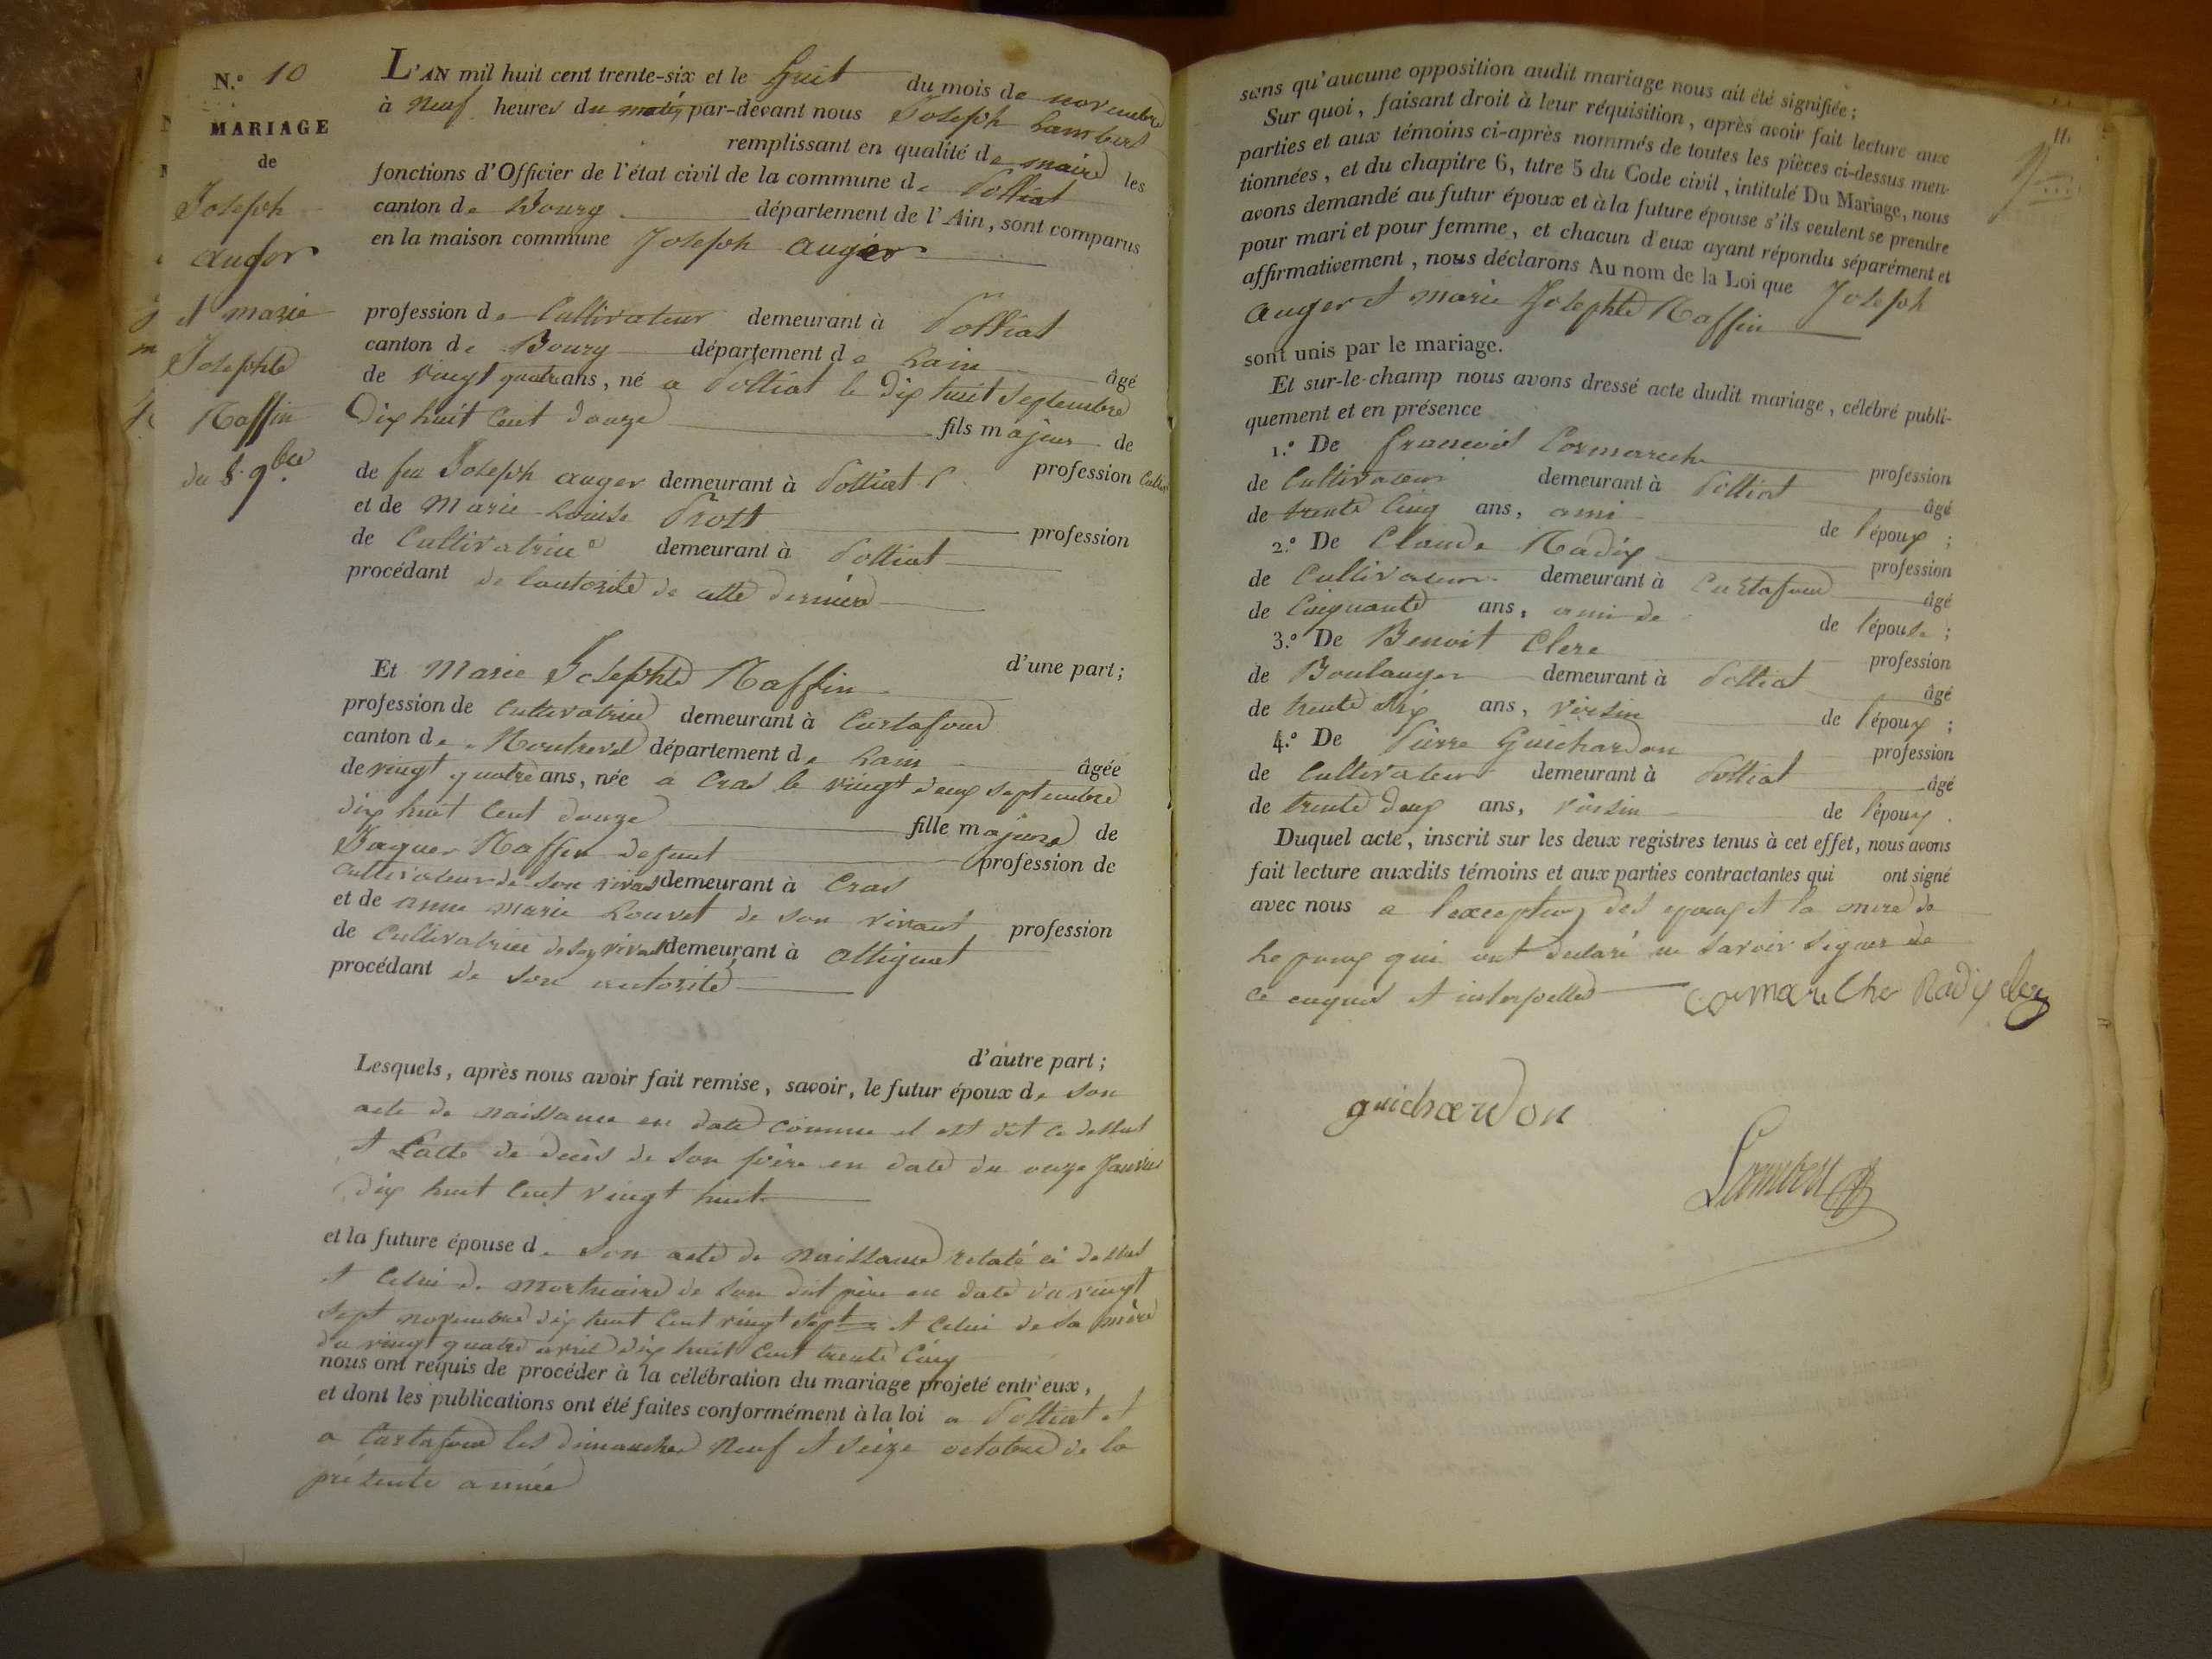 N.º 10
MARIAGE
de
Joseph
auger
et marie
Josephte
Raffin
du 8 9bre
L'AN mil huit cent trente-six et le huit du mois de novembre
à neuf heures du matin par-devant nous Joseph Lambert
remplissant en qualité de maire les
fonctions d'Officier de l'état civil de la commune de Polliat
canton de Bourg département de l'Ain, sont comparus
en la maison commune Joseph auger
profession de Cultivateur demeurant à Polliat
canton de Bourg département de Lain âgé
de vingt quatre ans, né a Polliat le dix huit septembre
dix huit cent douze fils majeur de
de feu Joseph auger demeurant à Polliat profession Cultiv
et de Marie Louise Prott profession
de Cultivatrice demeurant à Polliat
procédant de lautorité de cette derniere
d'une part;
Et Marie Josephte Raffin
profession de Cultivatrice demeurant à Curtafond
canton de Montrevel département de Lain âgée
de vingt quatre ans, née a Cras le vingt deux septembre
dix huit cent douze fille majeure de
Jaques Raffin defunt profession de
Cultivateur de son vivant demeurant à Cras
et de anne marie Louvet de son vivant profession
de Cultivatrice de son vivant demeurant à attignat
procédant de son autorité
d'autre part;
Lesquels, après nous avoir fait remise, savoir, le futur époux de son
acte de naissance en date comme il est dit ce dessus
et Lacte de décès de son père en date du onze Janvier
dix huit cent vingt huit
et la future épouse de son acte de naissance relaté ci dessus
et celui de mortuaire de son dit père en date du vingt
sept novembre dix huit cent vingt sept et celui de sa mère
du vingt quatre avril dix huit cent trente cinq
nous ont requis de procéder à la célébration du mariage projeté entr'eux,
et dont les publications ont été faites conformément à la loi a Polliat et
a Curtafond les dimanches neuf et seize octobre de la
présente année
sans qu'aucune opposition audit mariage nous ait été signifiée;
Sur quoi, faisant droit à leur réquisition, après avoir fait lecture aux
parties et aux témoins ci-après nommés de toutes les pièces ci-dessus men-
tionnées, et du chapitre 6, titre 5 du Code civil, intitulé Du Mariage, nous
avons demandé au futur époux et à la future épouse s'ils veulent se prendre
pour mari et pour femme, et chacun d'eux ayant répondu séparément et
affirmativement, nous déclarons Au nom de la Loi que Joseph
auger et marie Josephte Raffin
sont unis par le mariage.
Et sur-le-champ nous avons dressé acte dudit mariage, célébré publi-
quement et en présence
1.º De francois Cormareche profession
de Cultivateur demeurant à Polliat âgé
de trente cinq ans, ami de l'époux;
2.º De Claude Radix profession
de Cultivateur demeurant à Curtafond âgé
de Cinquante ans, ami de de l'épouse;
3.º De Benoit Clere profession
de Boulanger demeurant à Polliat âgé
de trente dix ans, voisin de l'époux;
4.º De Pierre Guichardon profession
de Cultivateur demeurant à Polliat âgé
de trente deux ans, voisin de l'époux.
Duquel acte, inscrit sur les deux registres tenus à cet effet, nous avons
fait lecture auxdits témoins et aux parties contractantes qui ont signé
avec nous a l'exception des epoux et la mere de
Lepoux qui ont declaré ne savoir signer de
ce enquis et interpellés
cormareche Radix clerc
guichardon
Lambert